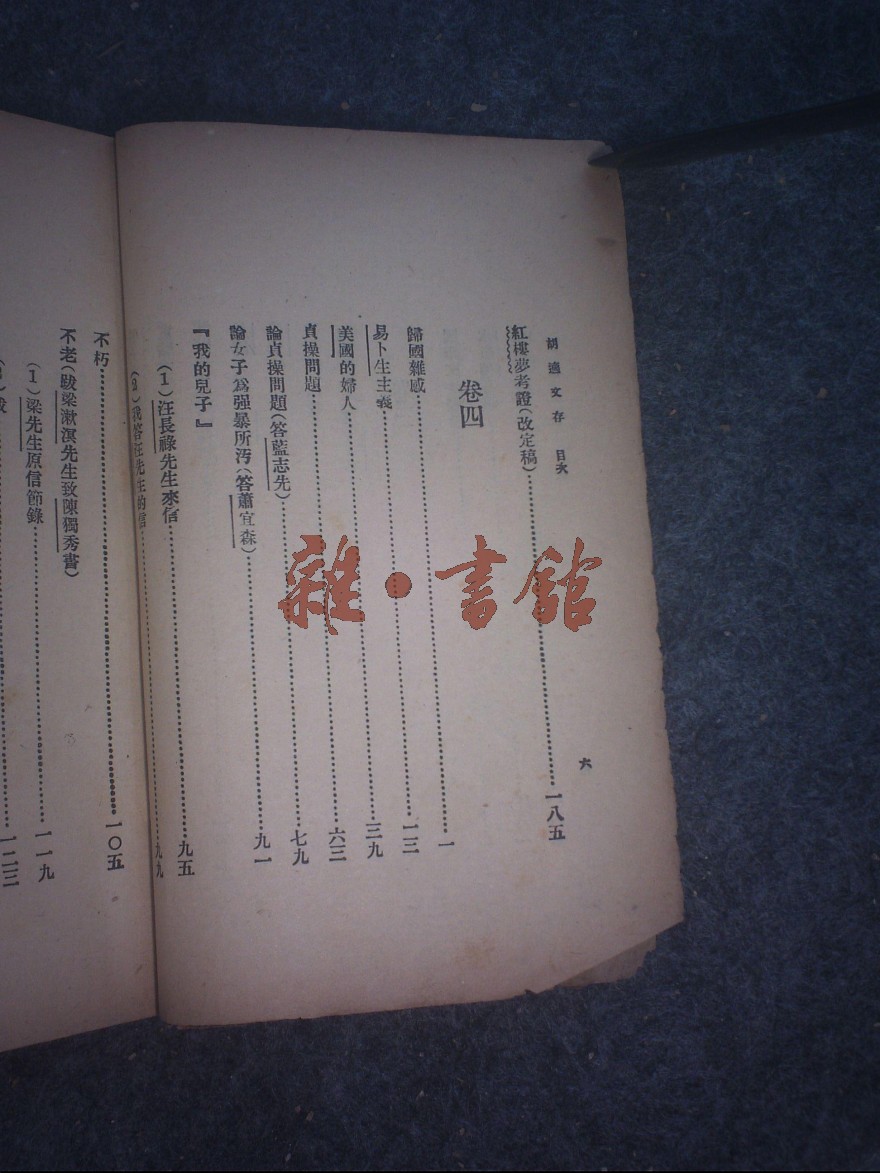 胡適文存 目次 六
紅樓夢考證(改定稿)……一八五
卷四
歸國雜感……一
易卜生主義……一三
美國的婦人……三九
貞操問題……六三
論貞操問題(答藍志先)……七九
論女子爲强暴所汚(答蕭宜森)……九一
『我的兒子』
(1)汪長祿先生來信……九五
(2)我答汪先生的信……九九
不朽……一〇五
不老(跋梁漱溟先生致陳獨秀書)
(1)梁先生原信節錄……一一九
一二三
雜·書館